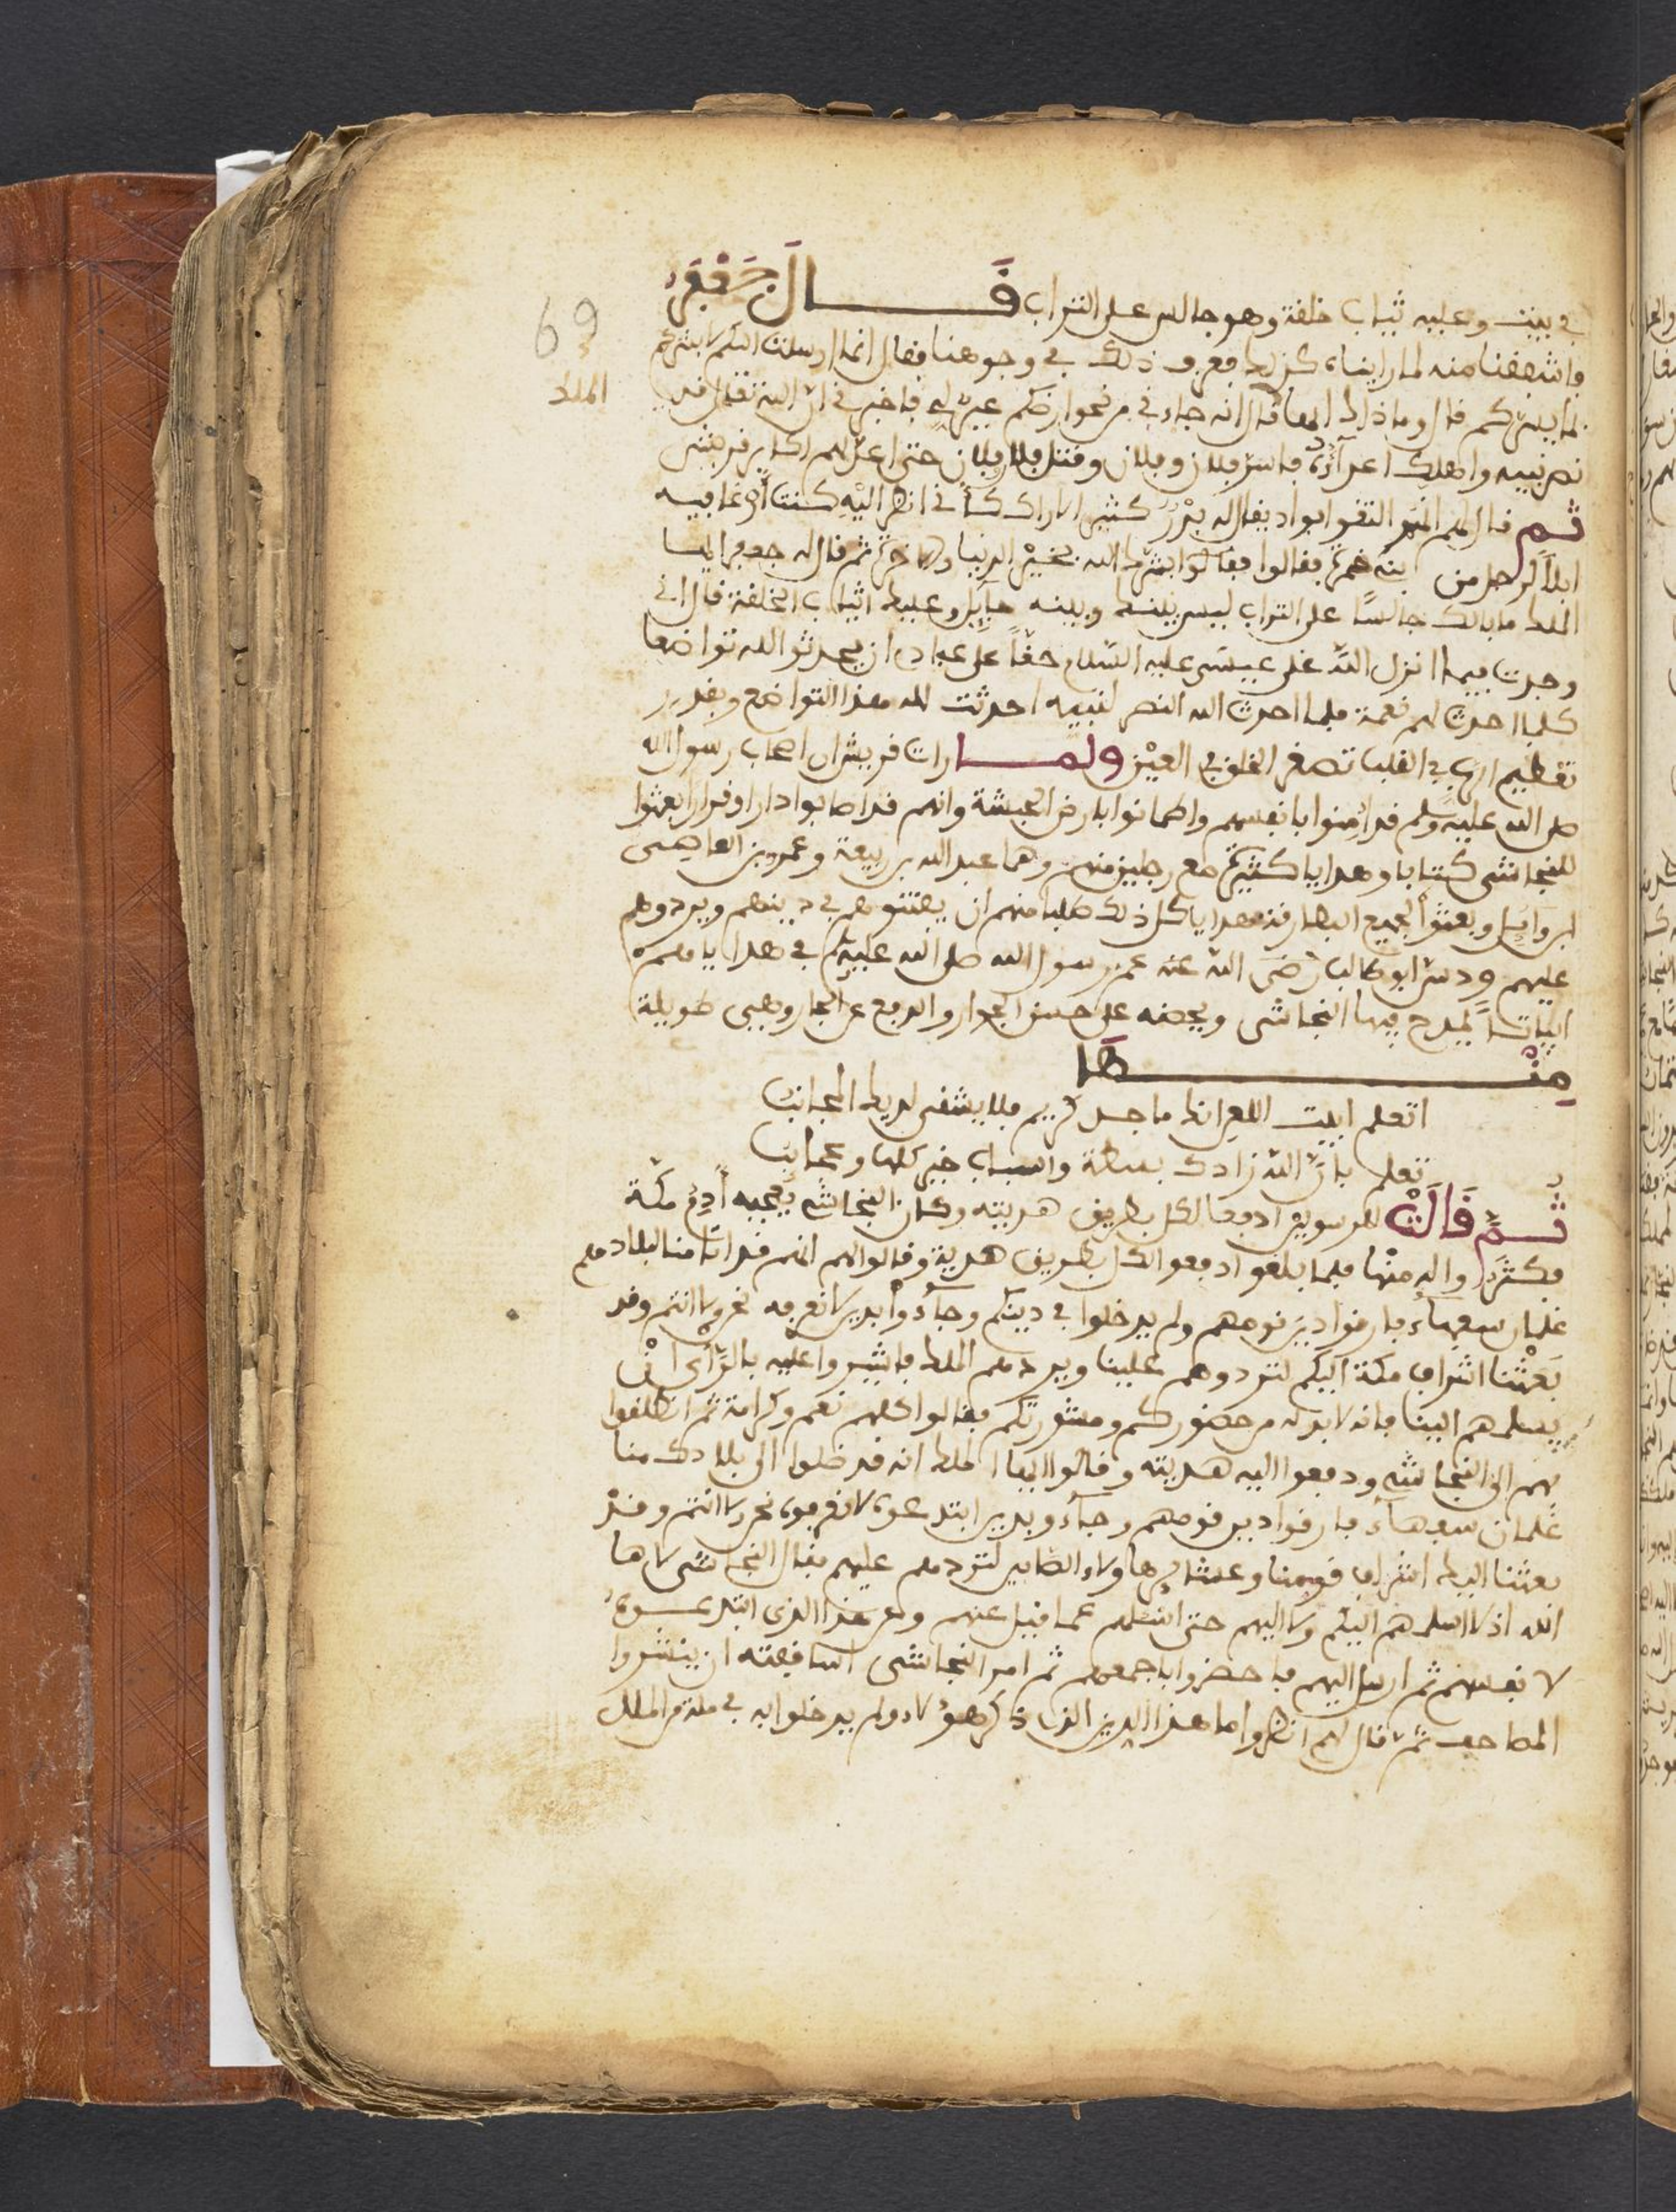 في بيت وعليه ثياب خلقة وهو جالس على التراب قال جعفر
فاشفقنا منه لما رايناه كذلك فعرف ذلك في وجوهنا فقال انما ارسلت اليكم لابشركم
69
بما يسركم قال وما ذاك ايها قال انه جاءني من نحو ارضكم عين لي فاخبرني ان الله تعالى قد
الملك
نصر نبيه واهلك اعداءه فاسر فلان وفلان وقتل فلان وفلان حتى اعد لهم اكابر قريش
ثم قال لهم التقوا بواد يقال له بدر كثير الاراك كأني انظر اليه كنت ارعى فيه
ابلا لرجل من بني ضمرة فقالوا بشرك الله بخير الدنيا والاخرة ثم قال له جعفر ايها
الملك ما بالك جالسا على التراب ليس بينك وبينه حايل وعليك الثياب الخلقة قال اني
وجدت فيما انزل الله على عيسى عليه السلام حقا على عباده ان يحدثوا لله تواضعا
كلما احدث لهم نعمة فلما احدث الله النصر لنبيه احدثت لله هذا التواضع وبقدر
تعظيم الرب في القلب تصغر الخلق في العين ولما رات قريش ان اصحاب رسول الله
صلى الله عليه وسلم قد امنوا بانفسهم واطمانوا بارض الحبشة وانهم قد اصابوا دارا وقرارا بعثوا
للنجاشي كتابا وهدايا كثيرة مع رجلين منهم وهما عبد الله بن ربيعة وعمرو بن العاصي
ابن وايل وبعثوا لجميع البطارقة هدايا كل ذلك طلبا منهم ان يفتنوهم في دينهم ويردوهم
عليهم ودس ابو طالب رضي الله عنه عم رسول الله صلى الله عليه في هداياهم
ابياتا يمدح فيها النجاشي ويحضه على حسن الجوار والدفع عن الجار وهي طويلة
منها
اتعلم ابيت اللعن انك ماجد كريم فلا يشقى لديك المجانب
تعلم بان الله زادك بسطة واسباب خير كلها وعجايب
ثم قالت للرسولين ادفعا لكل بطريق هديته وكان النجاشي يعجبه ادم مكة
فكثروا له منها فلما بلغوا دفعوا لكل بطريق هدية وقالوا لهم انهم قد اتانا منا لبلادهم
غلمان سفهاء فارقوا دين قومهم ولم يدخلوا في دينكم وجاءوا بدين لا نعرفه نحن ولا انتم وقد
بعثنا اشراف مكة اليكم لتردوهم علينا ويردهم الملك فاشيروا عليه بالرأي ان
يسلمهم الينا فانه لا بد له من حضوركم ومشورتكم فقالوا كلهم نعم وكرامة ثم انطلقوا
بهم الى النجاشي ودفعوا اليه هديته وقالوا ايها الملك انه قد ضلوا الى بلادك منا
غلمان سفهاء فارقوا دين قومهم وجاءو بدين ابتدعوه لا نعرفوه نحن ولا انتم وقد
بعثنا اليك اشراف قومنا وعشاير هاولاء الصابين لتردهم عليهم فقال النجاشي لا ها
الله اذ لا اسلمهم اليكم ولا اليهم حتى اسئلهم عما قيل عنهم وعن هذا الذي ابتدعوه
لانفسهم ثم ارسل اليهم فاحضروا باجمعهم ثم امر النجاشي اساقفته ان ينشروا
المصاحف ثم قال لهم انظروا ما هذا الدين الذي ذكر هؤلاء ولم يدخلوا به في ملة من الملل